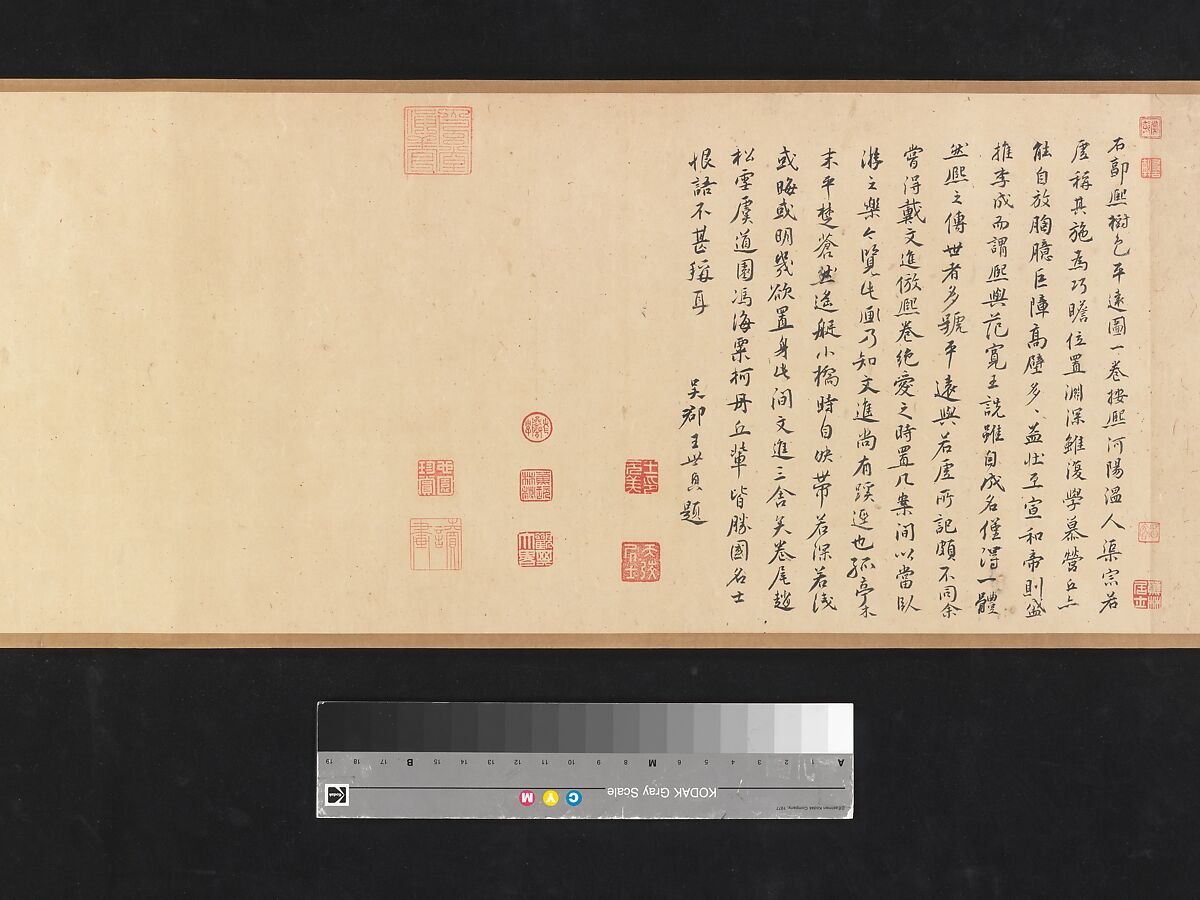 右郭熙樹色平遠圖一卷按熙河陽溫人渠宗若
虛稱其施為巧贍位置淵深雖復學慕營丘亦
能自放胸臆巨障高壁多多益壯至宣和帝則盛
推李成而謂熙與范寬王詵雖自成名僅得一體
然熙之傳世者多號平遠與若虛所記頗不同余
嘗得戴文進倣熙卷絕愛之時置几案間以當臥
游之樂今覽此画乃知文進尚有蹊逕也孤亭木
末平楚蒼然遙艇小橋時自映帶若深若淺
或晦或明幾欲置身此間文進三舍矣卷尾趙
松雪虞道園馮海粟柯丹丘輩皆勝國名士
恨語不甚稱耳
吳郡王世貞題
王氏元美
天弢居士
KODAK Gray Scale
C Y M
A 1 2 3 4 5 6 M 8 9 10 11 12 13 14 15 B 17 18 19
©Eastman Kodak Company, 1977
Kodak